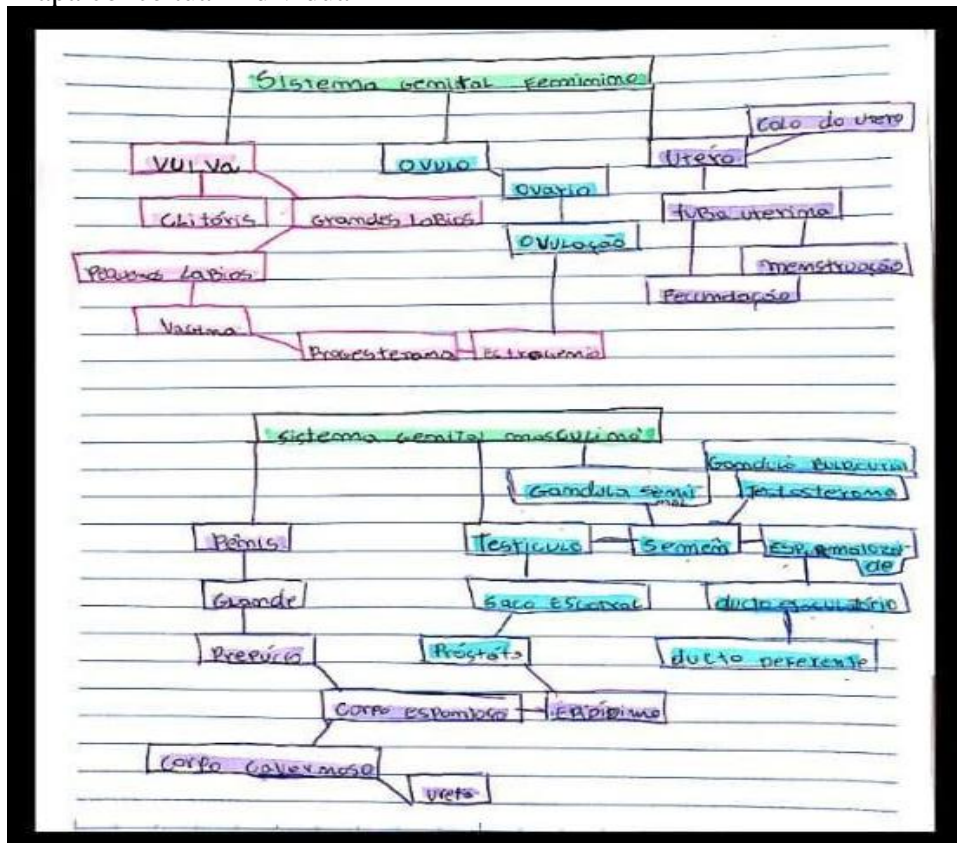 Sistema Genital Feminino
Colo do utero
VULVa
OVULO
Utero
Ovario
CLitóris
Grandes LaBios
tuBa uterina
OVULação
Pequenos LaBios
menstruação
Fecundação
Vagina
Progesterona
Estrogenio
sistema Genital masculino
Gandula Semi-
nal
Testosterona
Pênis
Testiculo
Semem
ESPermatozoi-
de
Glande
Saco ESCOrtal
ducto ejaculatório
Prepúcio
Próstata
ducto Deferente
Corpo ESPonjoso
EPiDiDimo
Corpo Cavernoso
Ureta